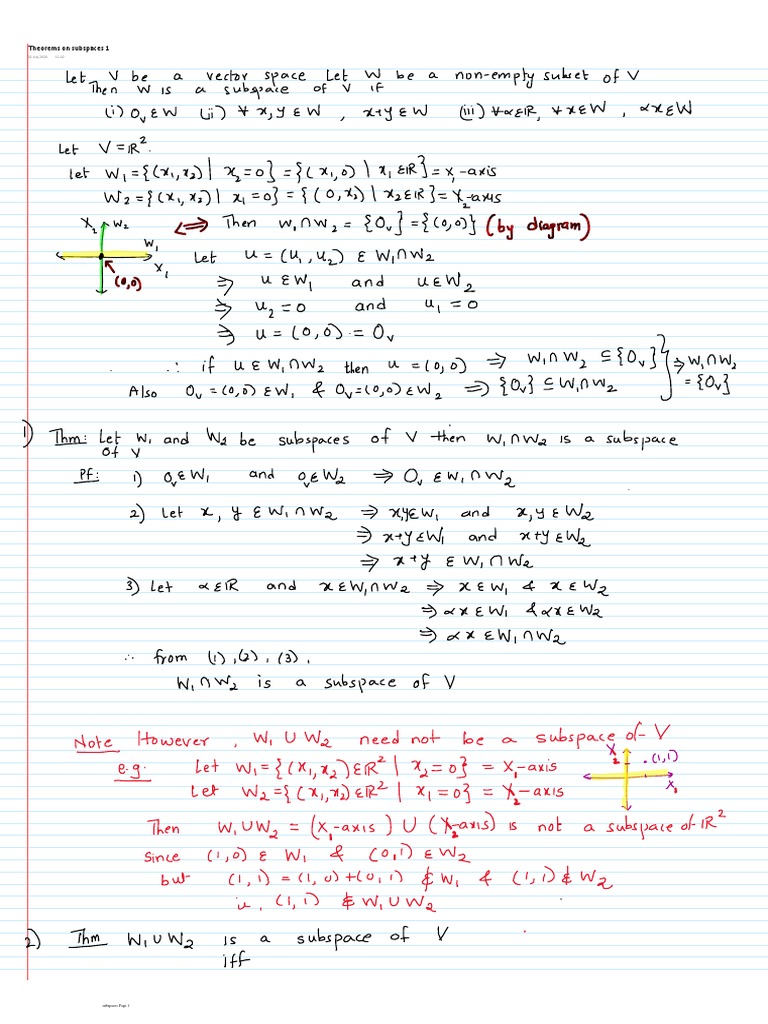 Theorems on subspaces 1
Let V be a vector space Let W be a non-empty subset of V
Then W is a subspace of V if
(i) 0_V ∈ W (ii) ∀ x, y ∈ W , x+y ∈ W (iii) ∀ α∈ℝ, ∀ x∈W , αx∈W
Let V = ℝ².
let W₁ = {(x₁, x₂) | x₂ = 0} = {(x₁, 0) | x₁ ∈ ℝ} = X₁-axis
W₂ = {(x₁, x₂) | x₁ = 0} = {(0, x₂) | x₂ ∈ ℝ} = X₂-axis
X₂ W₂
W₁
X₁
(0,0)
⟺ Then W₁ ∩ W₂ = {0_V} = {(0,0)} (by diagram)
Let u = (u₁, u₂) ∈ W₁ ∩ W₂
⇒ u ∈ W₁ and u ∈ W₂
⇒ u₂ = 0 and u₁ = 0
⇒ u = (0,0) = 0_V
∴ if u ∈ W₁ ∩ W₂ then u = (0,0) ⇒ W₁ ∩ W₂ ⊆ {0_V} } ⇒ W₁ ∩ W₂
Also 0_V = (0,0) ∈ W₁ & 0_V = (0,0) ∈ W₂ ⇒ {0_V} ⊆ W₁ ∩ W₂ = {0_V}
1) Thm: Let W₁ and W₂ be subspaces of V then W₁ ∩ W₂ is a subspace
of V
Pf: 1) 0_V ∈ W₁ and 0_V ∈ W₂ ⇒ 0_V ∈ W₁ ∩ W₂
2) Let x, y ∈ W₁ ∩ W₂ ⇒ x,y ∈ W₁ and x, y ∈ W₂
⇒ x+y ∈ W₁ and x+y ∈ W₂
⇒ x+y ∈ W₁ ∩ W₂
3) Let α ∈ ℝ and x ∈ W₁ ∩ W₂ ⇒ x ∈ W₁ & x ∈ W₂
⇒ αx ∈ W₁ & αx ∈ W₂
⇒ αx ∈ W₁ ∩ W₂
∴ from (1), (2), (3),
W₁ ∩ W₂ is a subspace of V
Note However, W₁ ∪ W₂ need not be a subspace of V
e.g. Let W₁ = {(x₁, x₂) ∈ ℝ² | x₂ = 0} = X₁-axis
Let W₂ = {(x₁, x₂) ∈ ℝ² | x₁ = 0} = X₂-axis
X₂
(1,1)
X₁
Then W₁ ∪ W₂ = (X₁-axis) ∪ (X₂-axis) is not a subspace of ℝ²
Since (1,0) ∈ W₁ & (0,1) ∈ W₂
but (1,1) = (1,0) + (0,1) ∉ W₁ & (1,1) ∉ W₂
ie, (1,1) ∉ W₁ ∪ W₂
2) Thm W₁ ∪ W₂ is a subspace of V
iff
subspaces Page 1